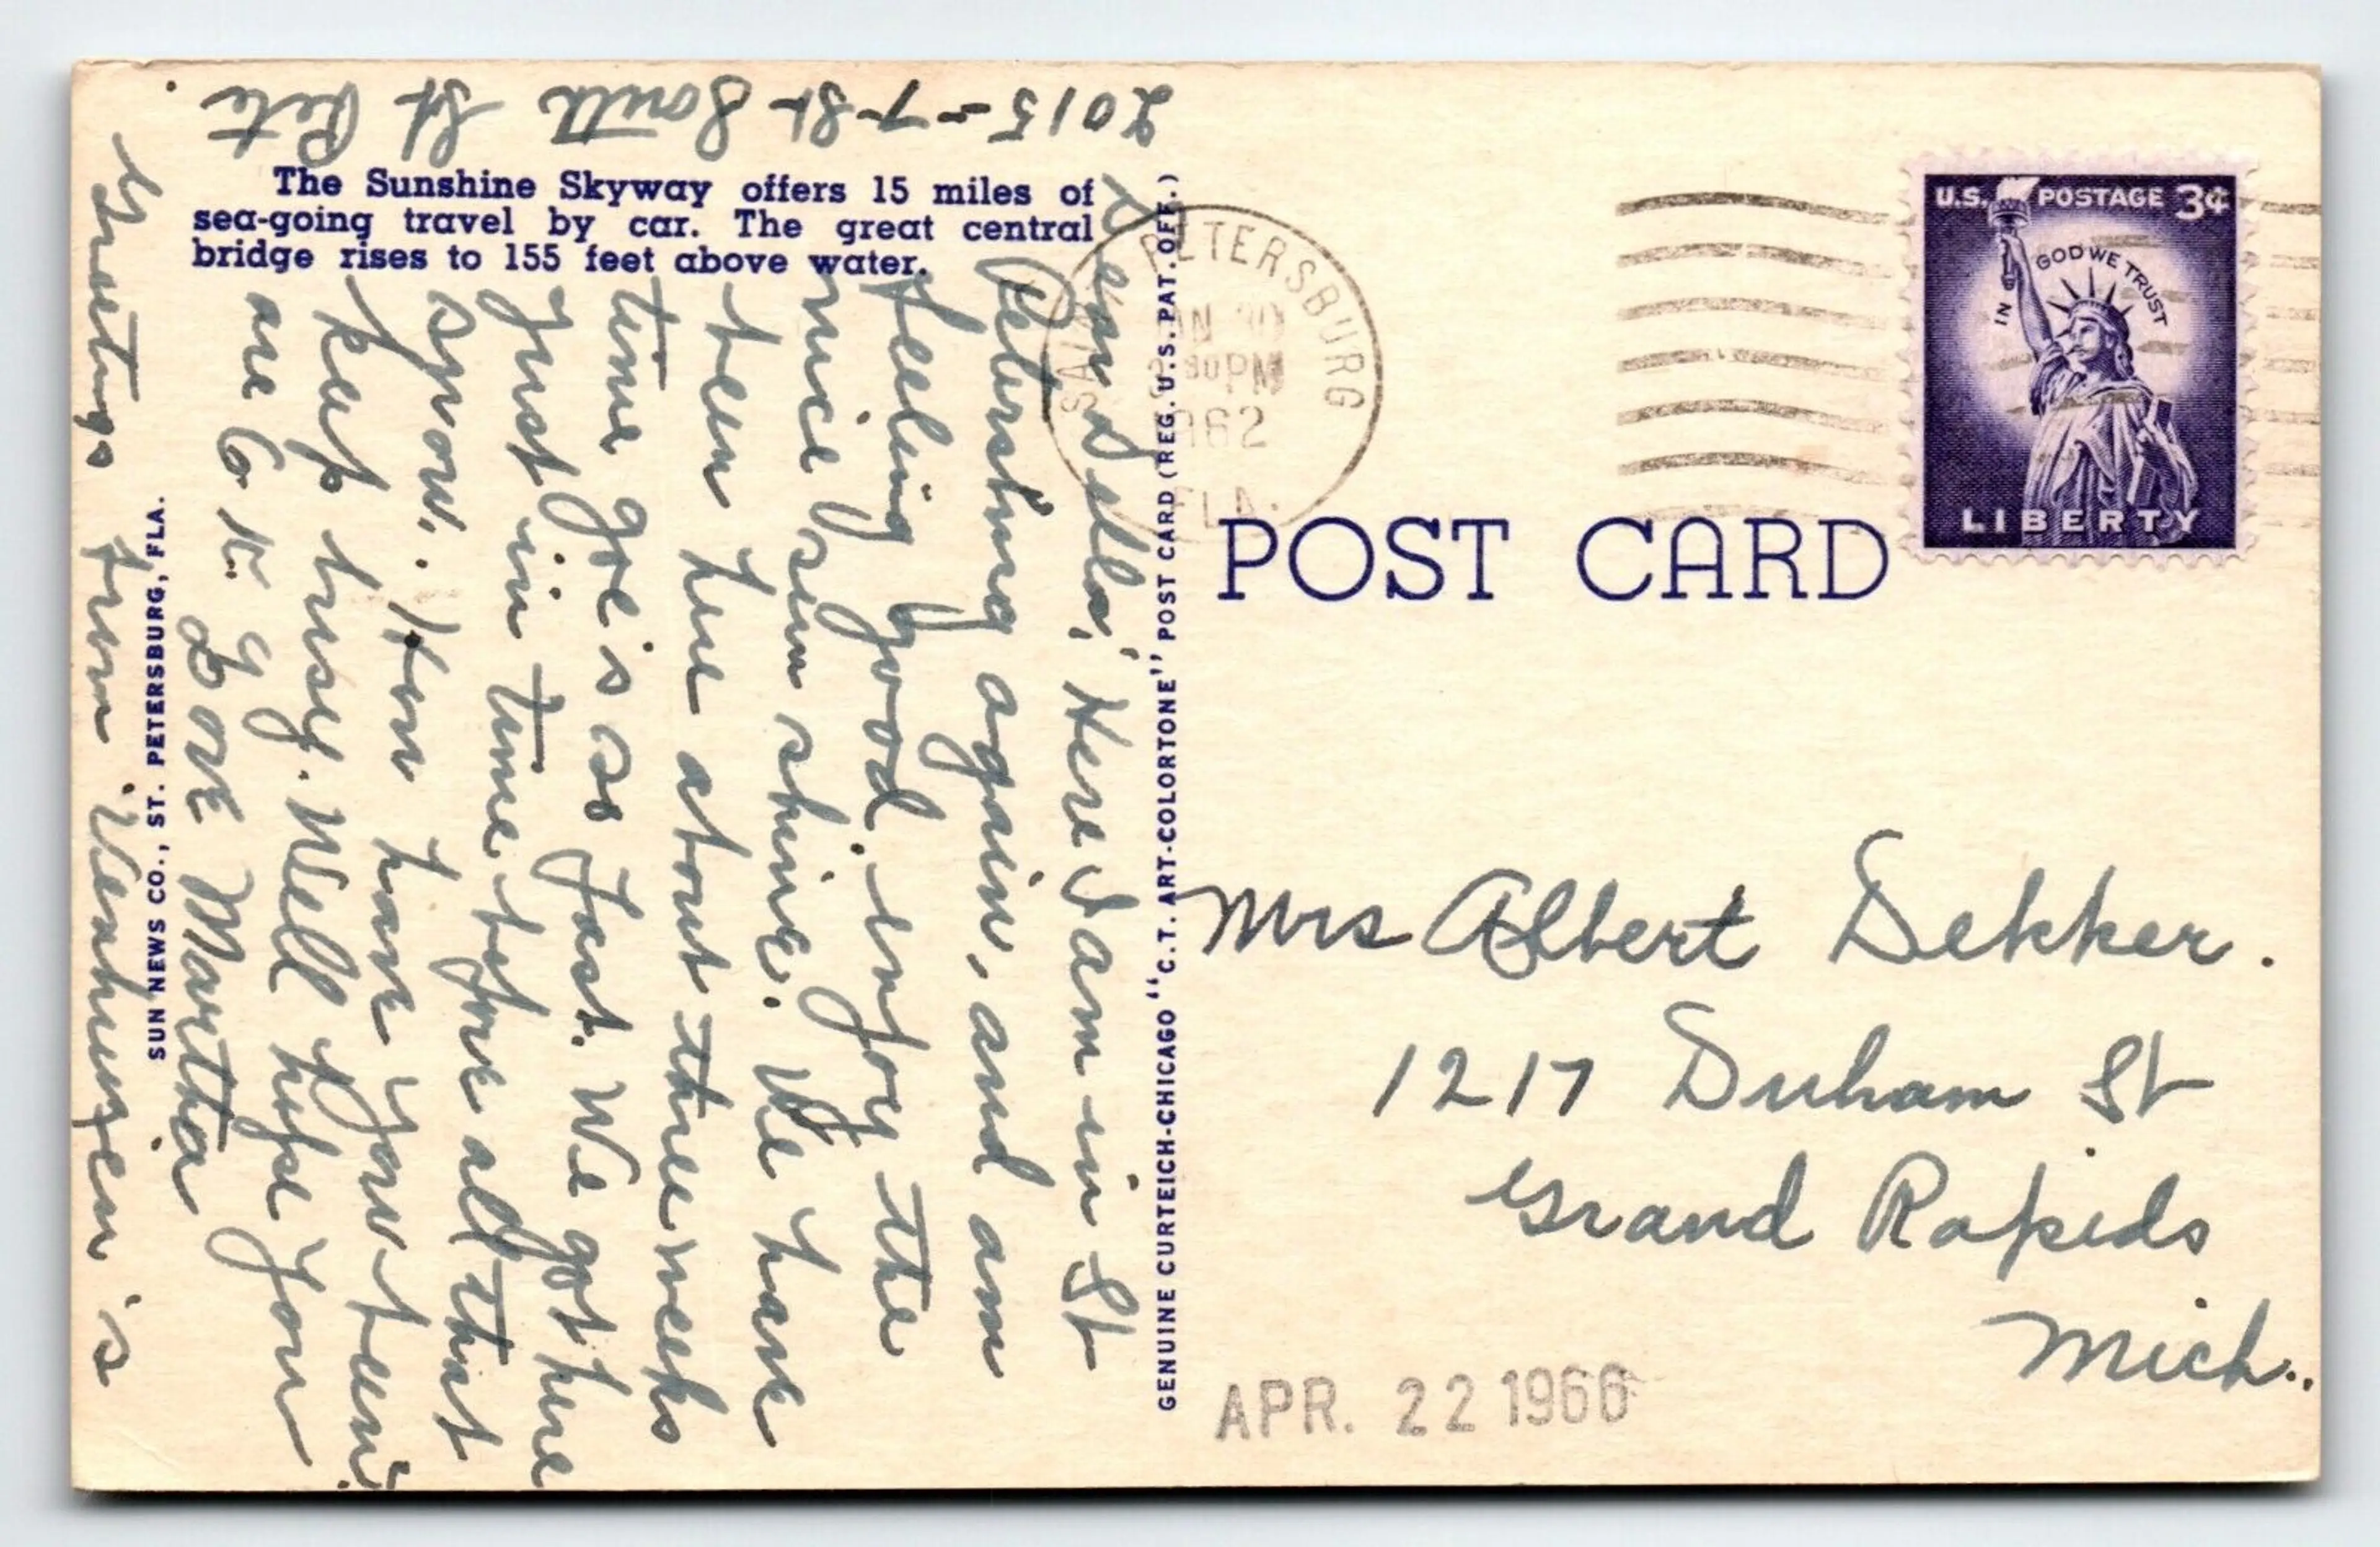 2015-7-St South St Pete
The Sunshine Skyway offers 15 miles of
sea-going travel by car. The great central
bridge rises to 155 feet above water.
Dear Della, Here I am in St
Petersburg again, and am
feeling good. enjoy the
nice sun shine. We have
been here about three weeks
time goe is so fast. We got here
just in time before all that
snow. How have you been
keap busy. Well hope you
are O.K.
Love Martha
Greetings from
SUN NEWS CO., ST. PETERSBURG, FLA.
GENUINE CURTEICH-CHICAGO "C.T. ART-COLORTONE" POST CARD (REG. U.S. PAT. OFF.)
SAINT PETERSBURG
30
PM
1962
FLA.
U.S. POSTAGE 3¢
IN GOD WE TRUST
LIBERTY
POST CARD
Mrs Albert Dekker.
1217 Duham St
Grand Rapids
Mich..
APR. 22 1966